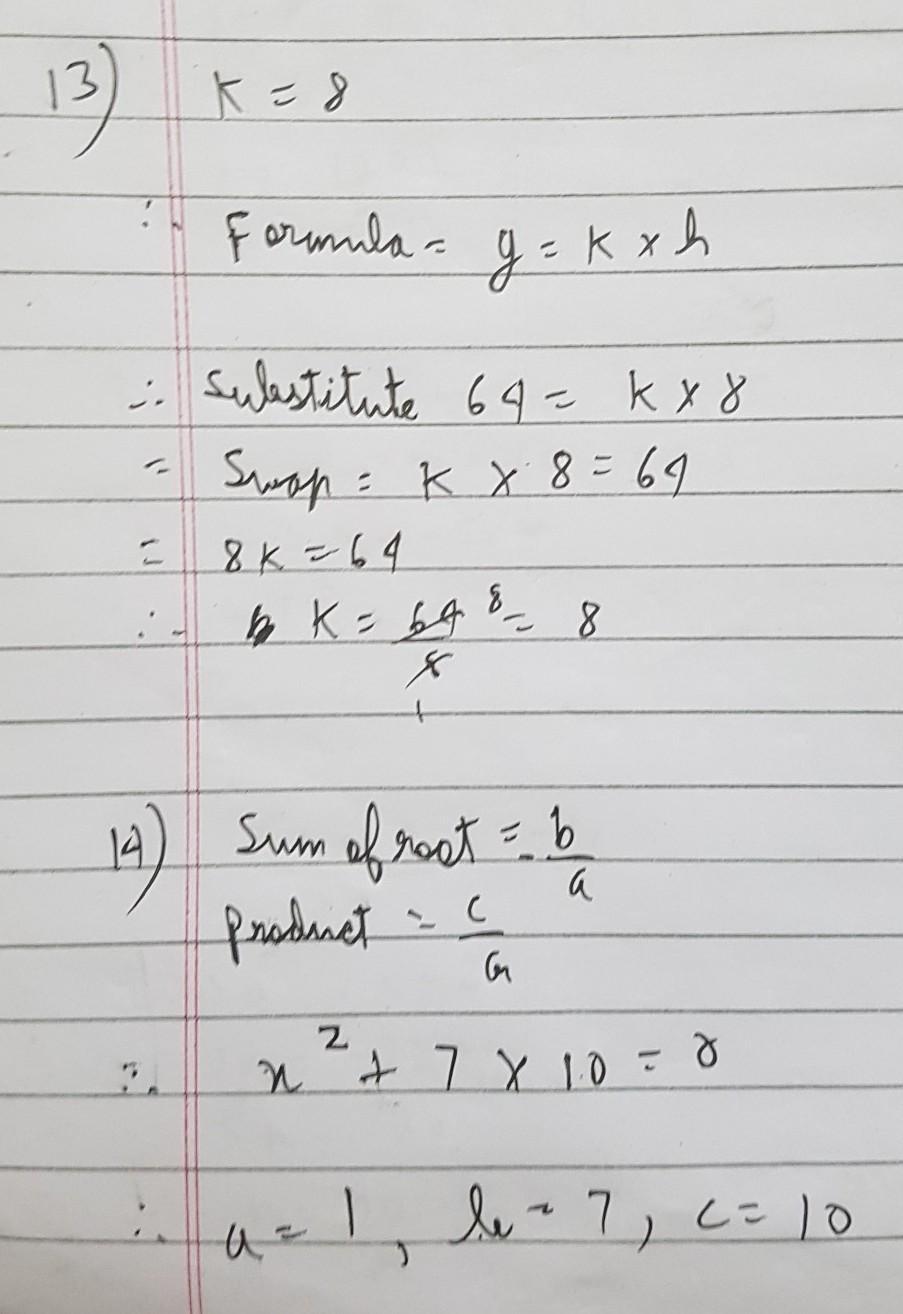 13) K = 8
∴ Formula = y = K x h
∴ Substitute 64 = K x 8
= Swap = K x 8 = 64
= 8K = 64
∴ K = 64 8 = 8
8
1
14) Sum of root = - b
a
product = c
a
∴ x² + 7 x 10 = 0
∴ a = 1, b = 7, c = 10